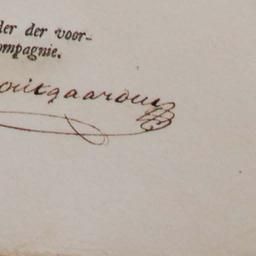 der der voor-
ompagnie.
outgaarden